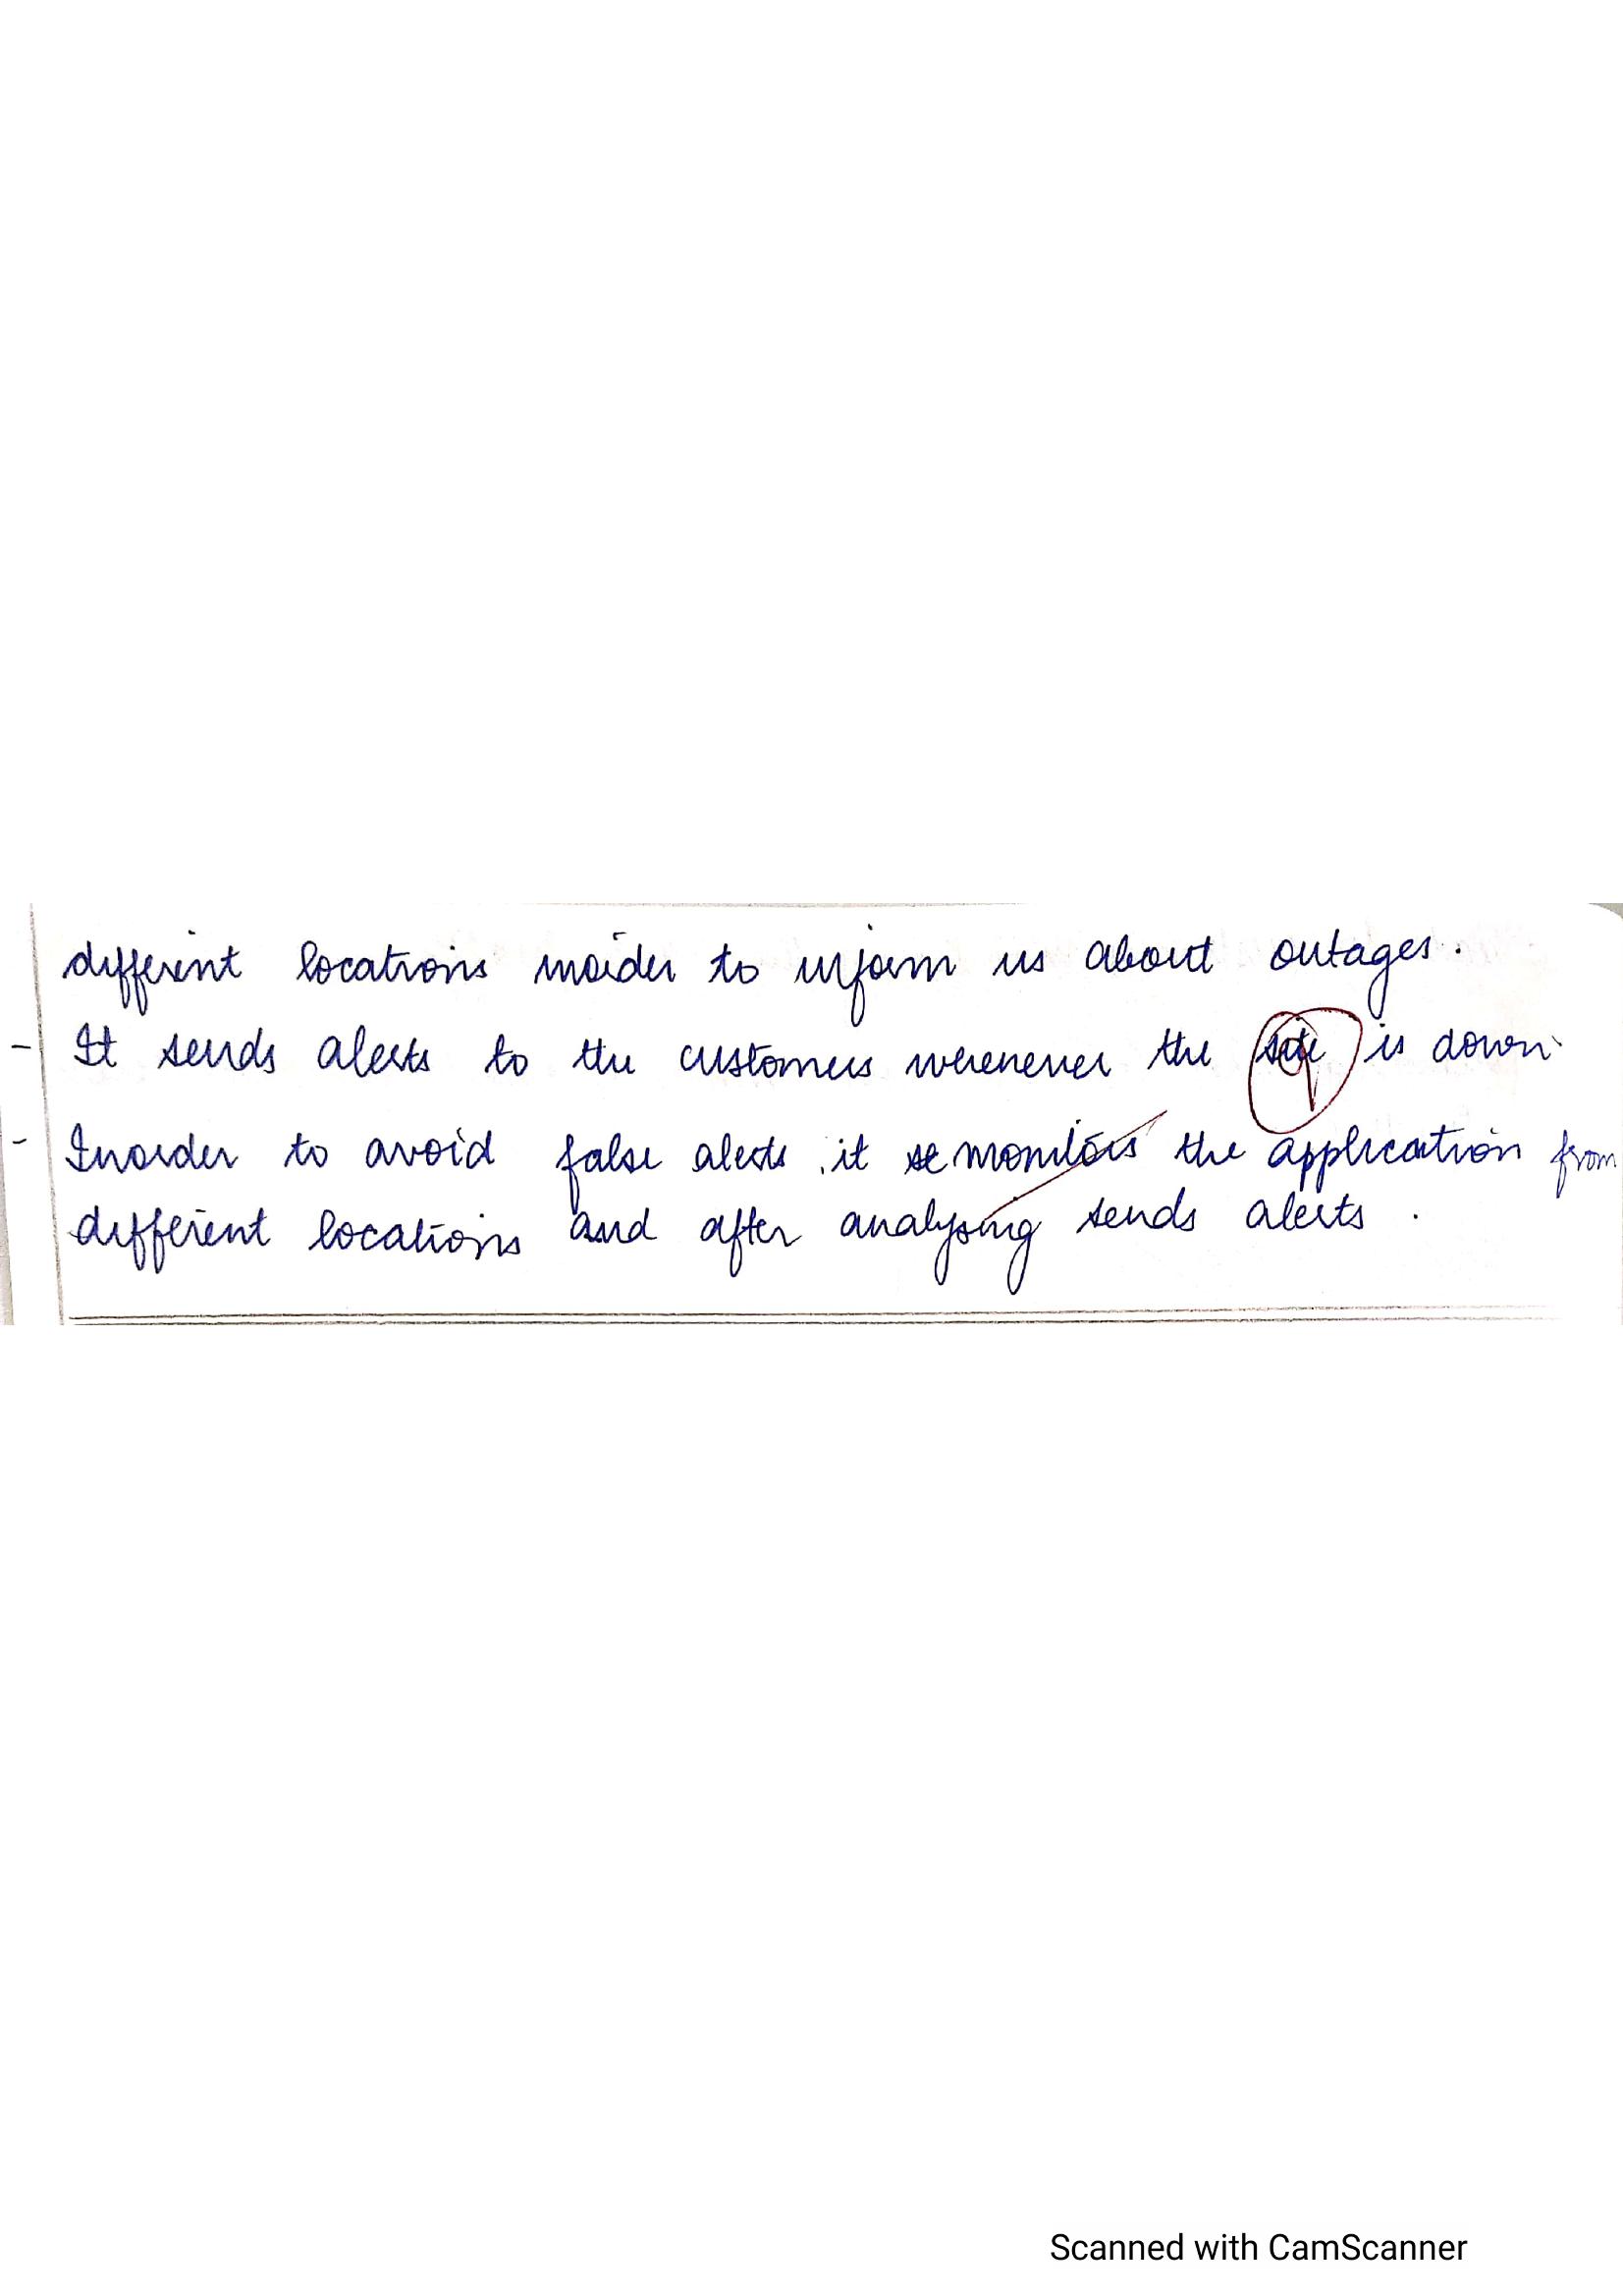 different locations inorder to inform us about outages.
- It sends alerts to the customers whenever the site is down.
- Inorder to avoid false alerts, it monitors the application from
different locations and after analysing sends alerts.
Scanned with CamScanner